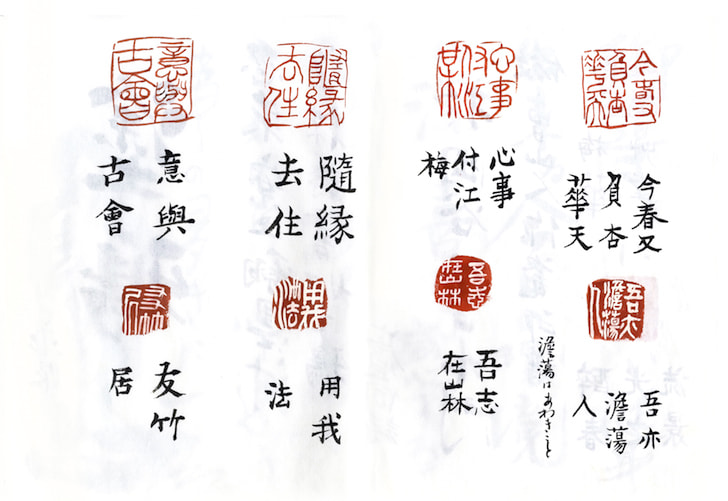 今春又
負杏
華天
吾亦
澹蕩
人
澹蕩はあわきこと
心事
付江
梅
吾志
在山林
隨縁
去住
用我
法
意與
古會
友竹
居